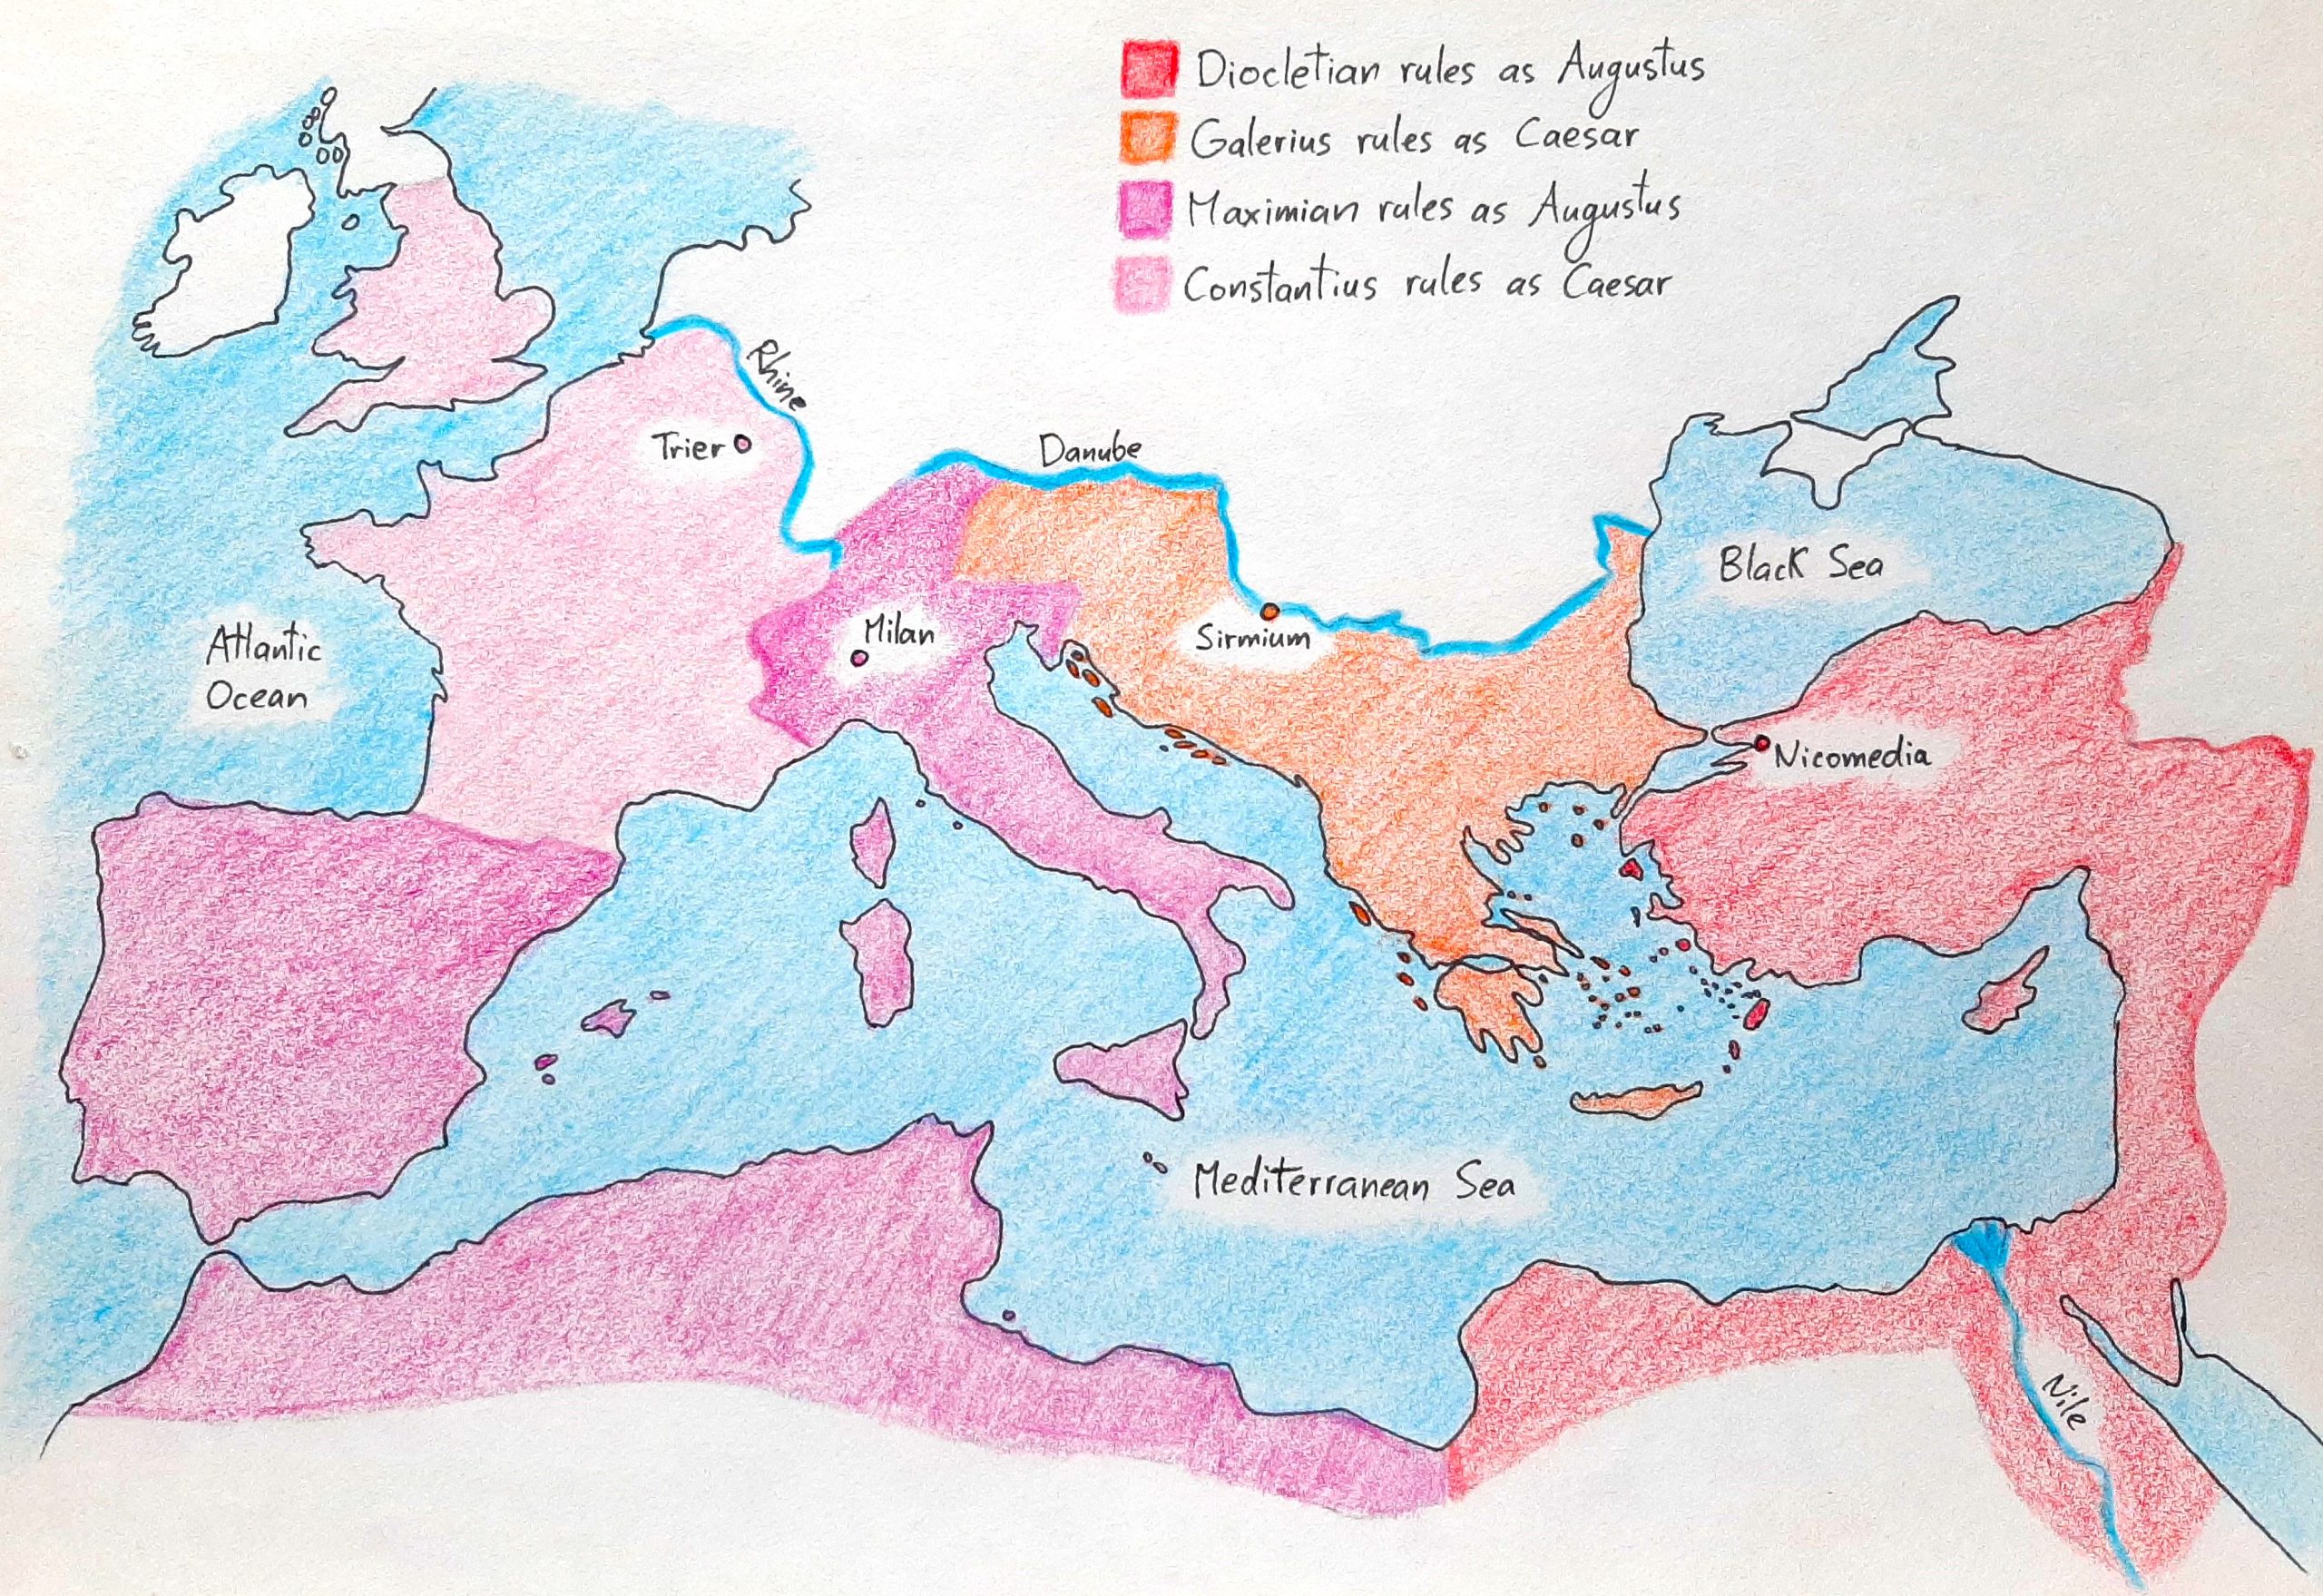 Diocletian rules as Augustus
Galerius rules as Caesar
Maximian rules as Augustus
Constantius rules as Caesar
Rhine
Trier
Danube
Black Sea
Milan
Sirmium
Atlantic
Ocean
Nicomedia
Mediterranean Sea
Nile